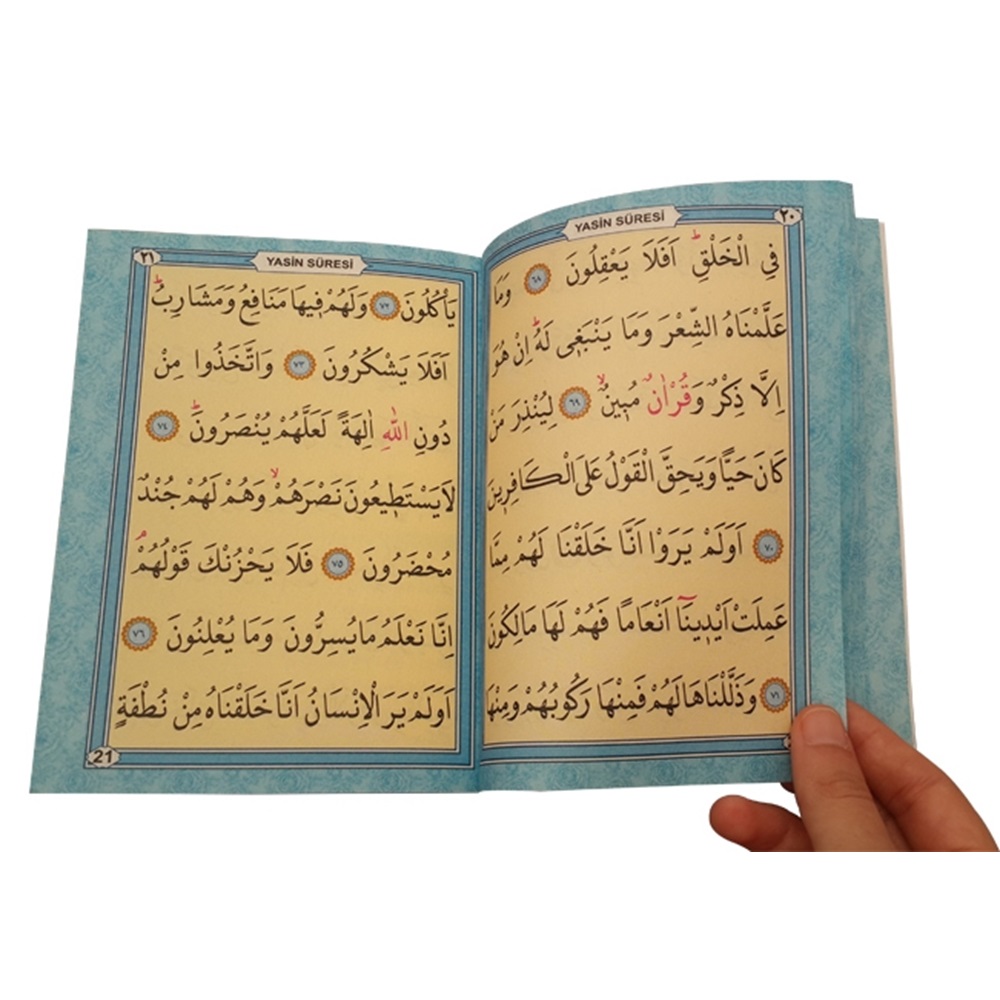 YASİN SÛRESİ ٢٠
فِي الْخَلْقِۜ اَفَلَا يَعْقِلُونَ ﴿٦٨﴾ وَمَا
عَلَّمْنَاهُ الشِّعْرَ وَمَا يَنْبَغ۪ي لَهُۜ اِنْ هُوَ
اِلَّا ذِكْرٌ وَقُرْاٰنٌ مُب۪ينٌۙ ﴿٦٩﴾ لِيُنْذِرَ مَنْ
كَانَ حَيًّا وَيَحِقَّ الْقَوْلُ عَلَى الْكَافِر۪ينَ
﴿٧٠﴾ اَوَلَمْ يَرَوْا اَنَّا خَلَقْنَا لَهُمْ مِمَّا
عَمِلَتْ اَيْد۪ينَٓا اَنْعَامًا فَهُمْ لَهَا مَالِكُونَ
﴿٧١﴾ وَذَلَّلْنَاهَا لَهُمْ فَمِنْهَا رَكُوبُهُمْ وَمِنْهَا
YASİN SÛRESİ ٢١
يَأْكُلُونَ ﴿٧٢﴾ وَلَهُمْ ف۪يهَا مَنَافِعُ وَمَشَارِبُۜ
اَفَلَا يَشْكُرُونَ ﴿٧٣﴾ وَاتَّخَذُوا مِنْ
دُونِ اللّٰهِ اٰلِهَةً لَعَلَّهُمْ يُنْصَرُونَۜ ﴿٧٤﴾
لَا يَسْتَط۪يعُونَ نَصْرَهُمْۙ وَهُمْ لَهُمْ جُنْدٌ
مُحْضَرُونَ ﴿٧٥﴾ فَلَا يَحْزُنْكَ قَوْلُهُمْۢ
اِنَّا نَعْلَمُ مَا يُسِرُّونَ وَمَا يُعْلِنُونَ ﴿٧٦﴾
اَوَلَمْ يَرَ الْاِنْسَانُ اَنَّا خَلَقْنَاهُ مِنْ نُطْفَةٍ
21